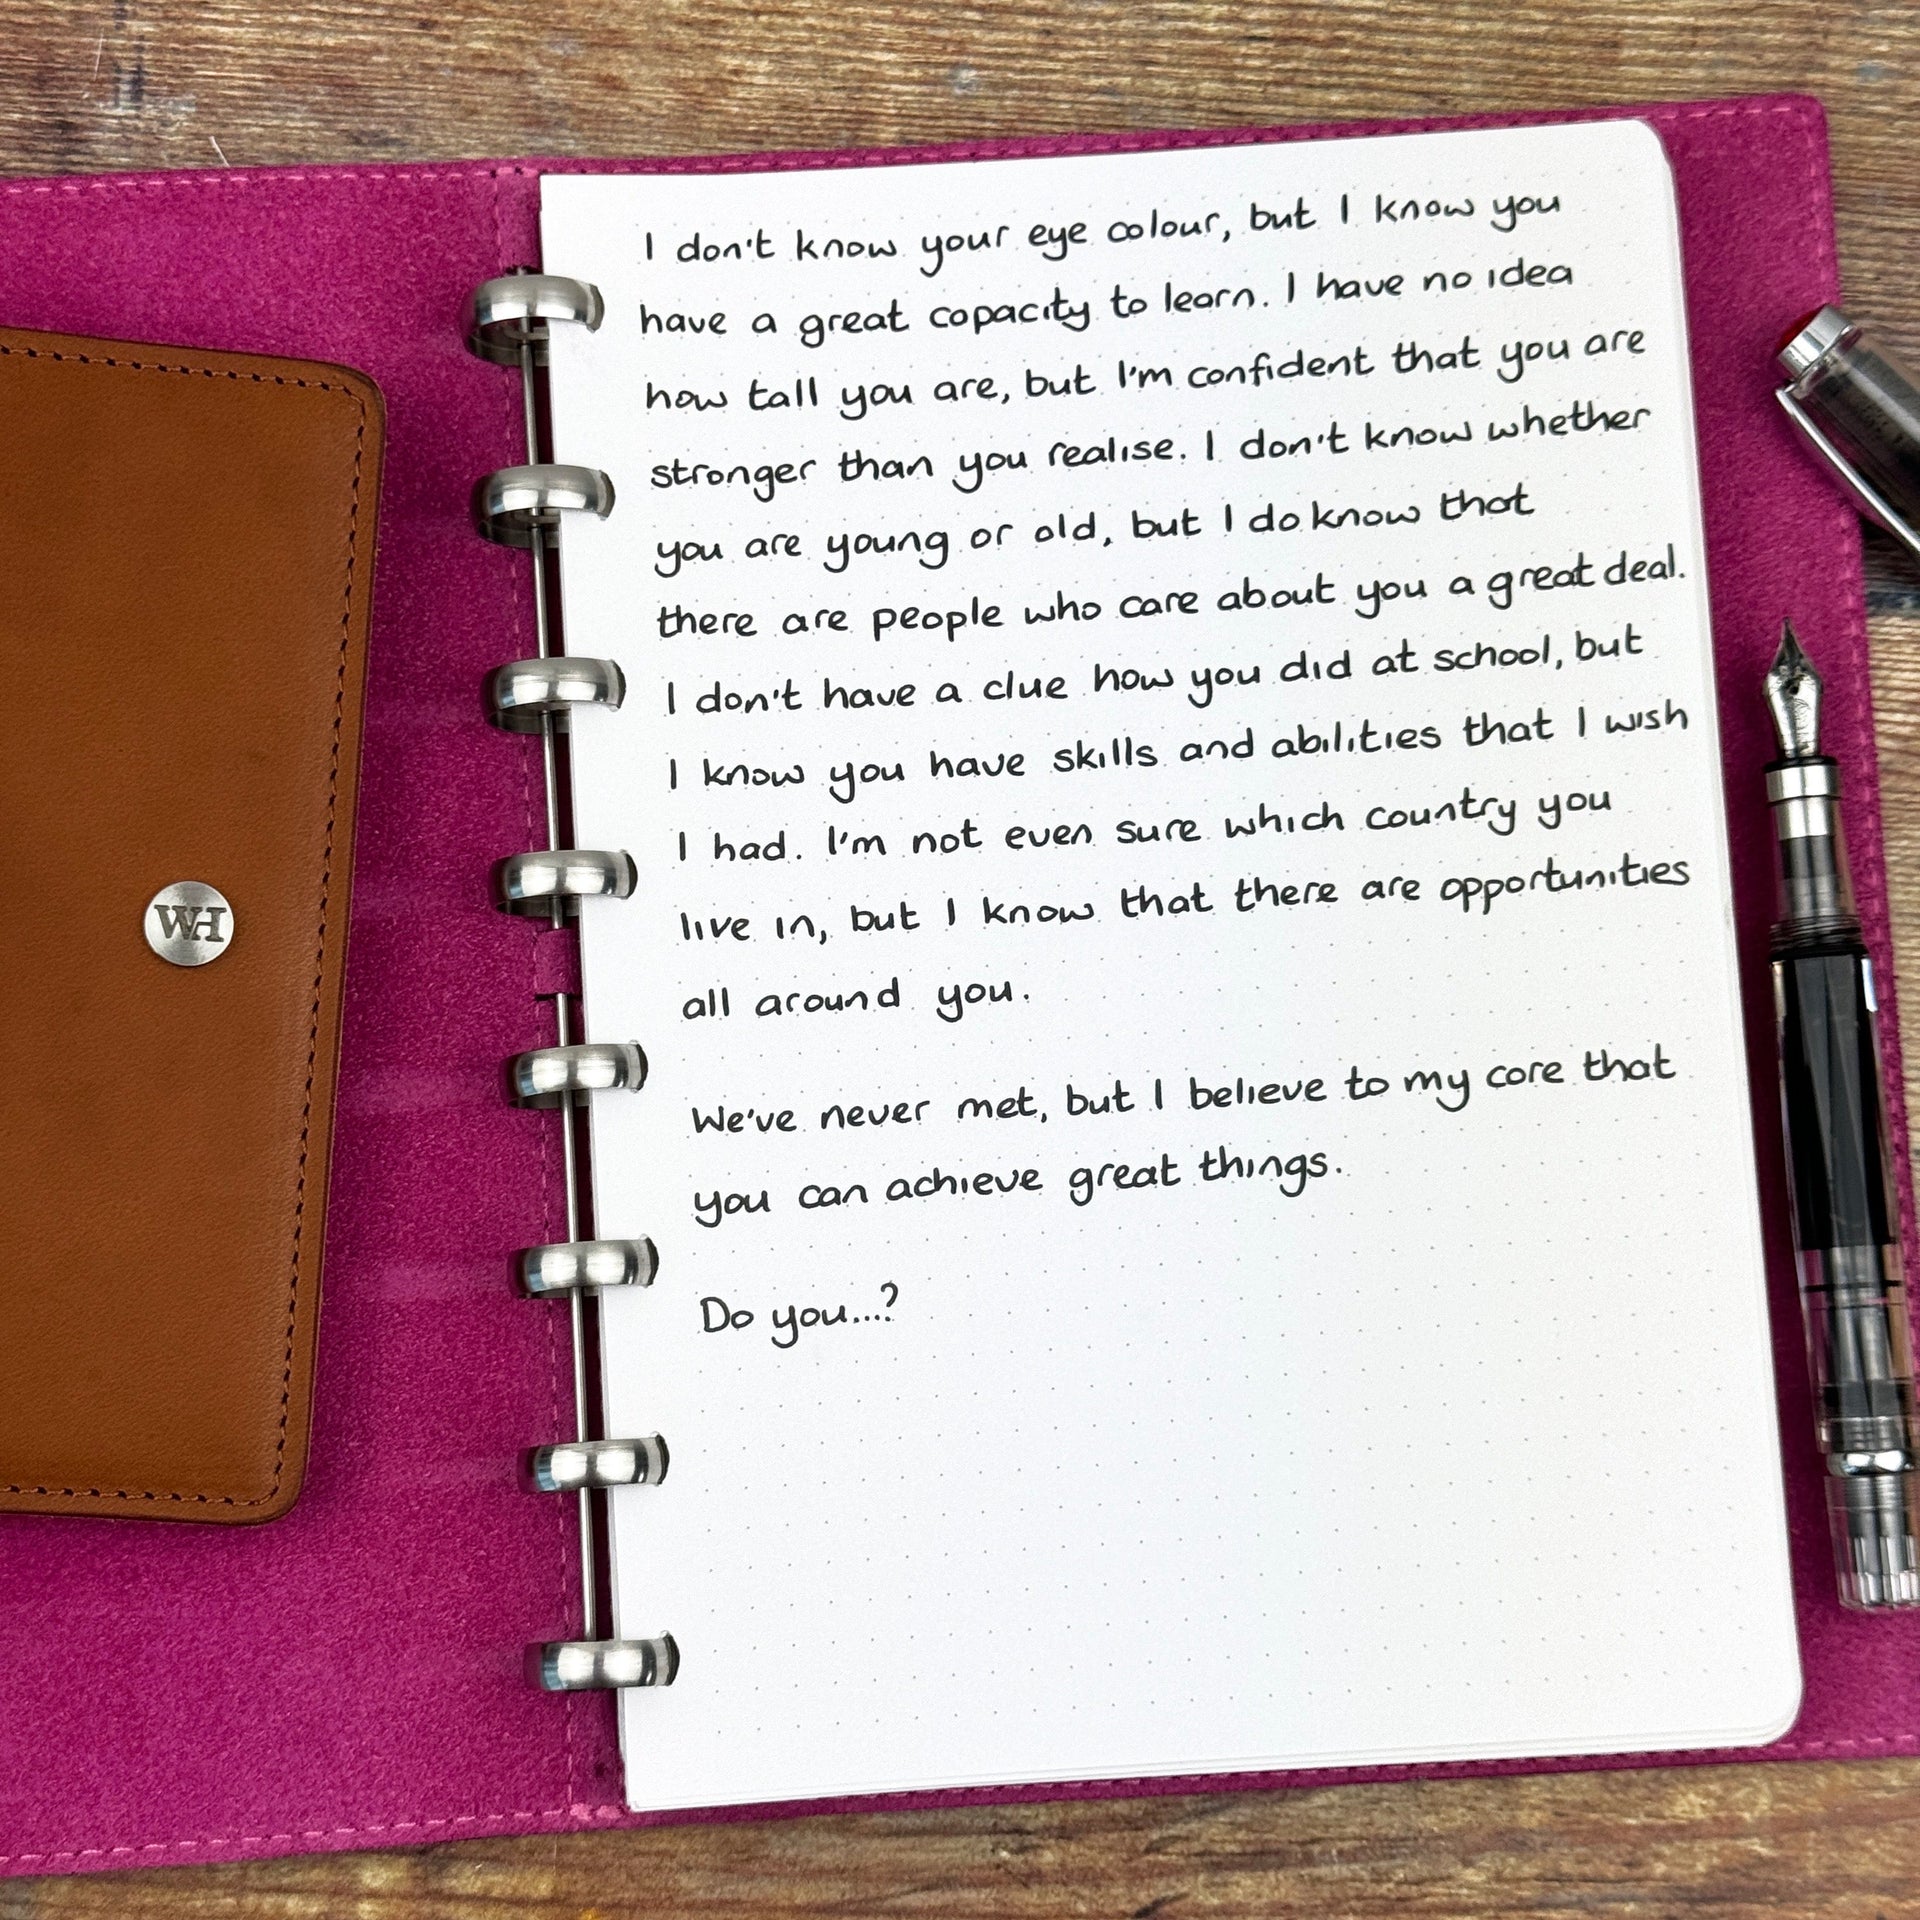 I don't know your eye colour, but I know you
have a great capacity to learn. I have no idea
how tall you are, but I'm confident that you are
stronger than you realise. I don't know whether
you are young or old, but I do know that
there are people who care about you a great deal.
I don't have a clue how you did at school, but
I know you have skills and abilities that I wish
I had. I'm not even sure which country you
live in, but I know that there are opportunities
all around you.
We've never met, but I believe to my core that
you can achieve great things.
Do you...?
WH